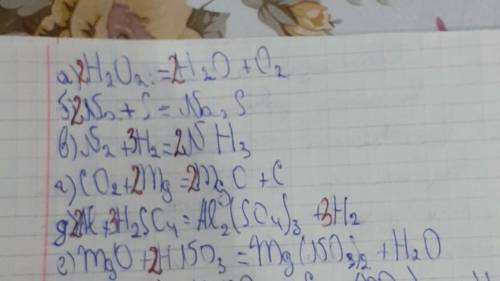 а) 2H₂O₂ = 2H₂O + O₂
б) 2Na + S = Na₂S
в) N₂ + 3H₂ = 2NH₃
г) CO₂ + 2Mg = 2MgO + C
д) 2Al + 3H₂SO₄ = Al₂(SO₄)₃ + 3H₂
е) MgO + 2HNO₃ = Mg(NO₃)₂ + H₂O